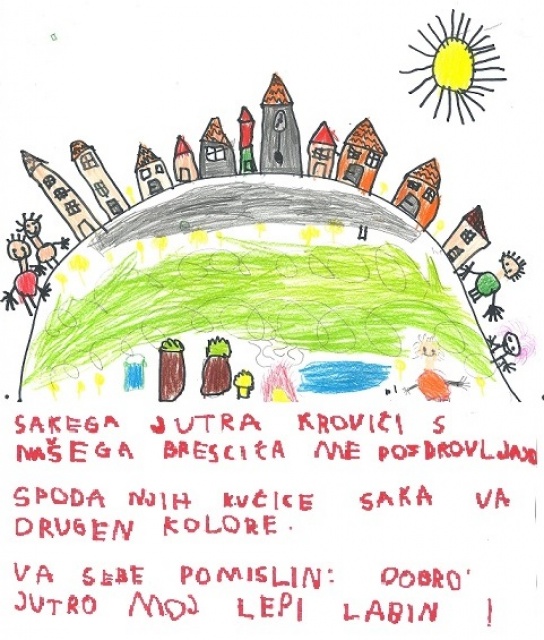 SAKEGA JUTRA KROVIĆI S
NAŠEGA BRESCIĆA ME POZDROVLJAJU
SPODA NJIH KUĆICE SAKA VA
DRUGEN KOLORE.
VA SEBE POMISLIN: DOBRO
JUTRO MOJ LEPI LABIN !